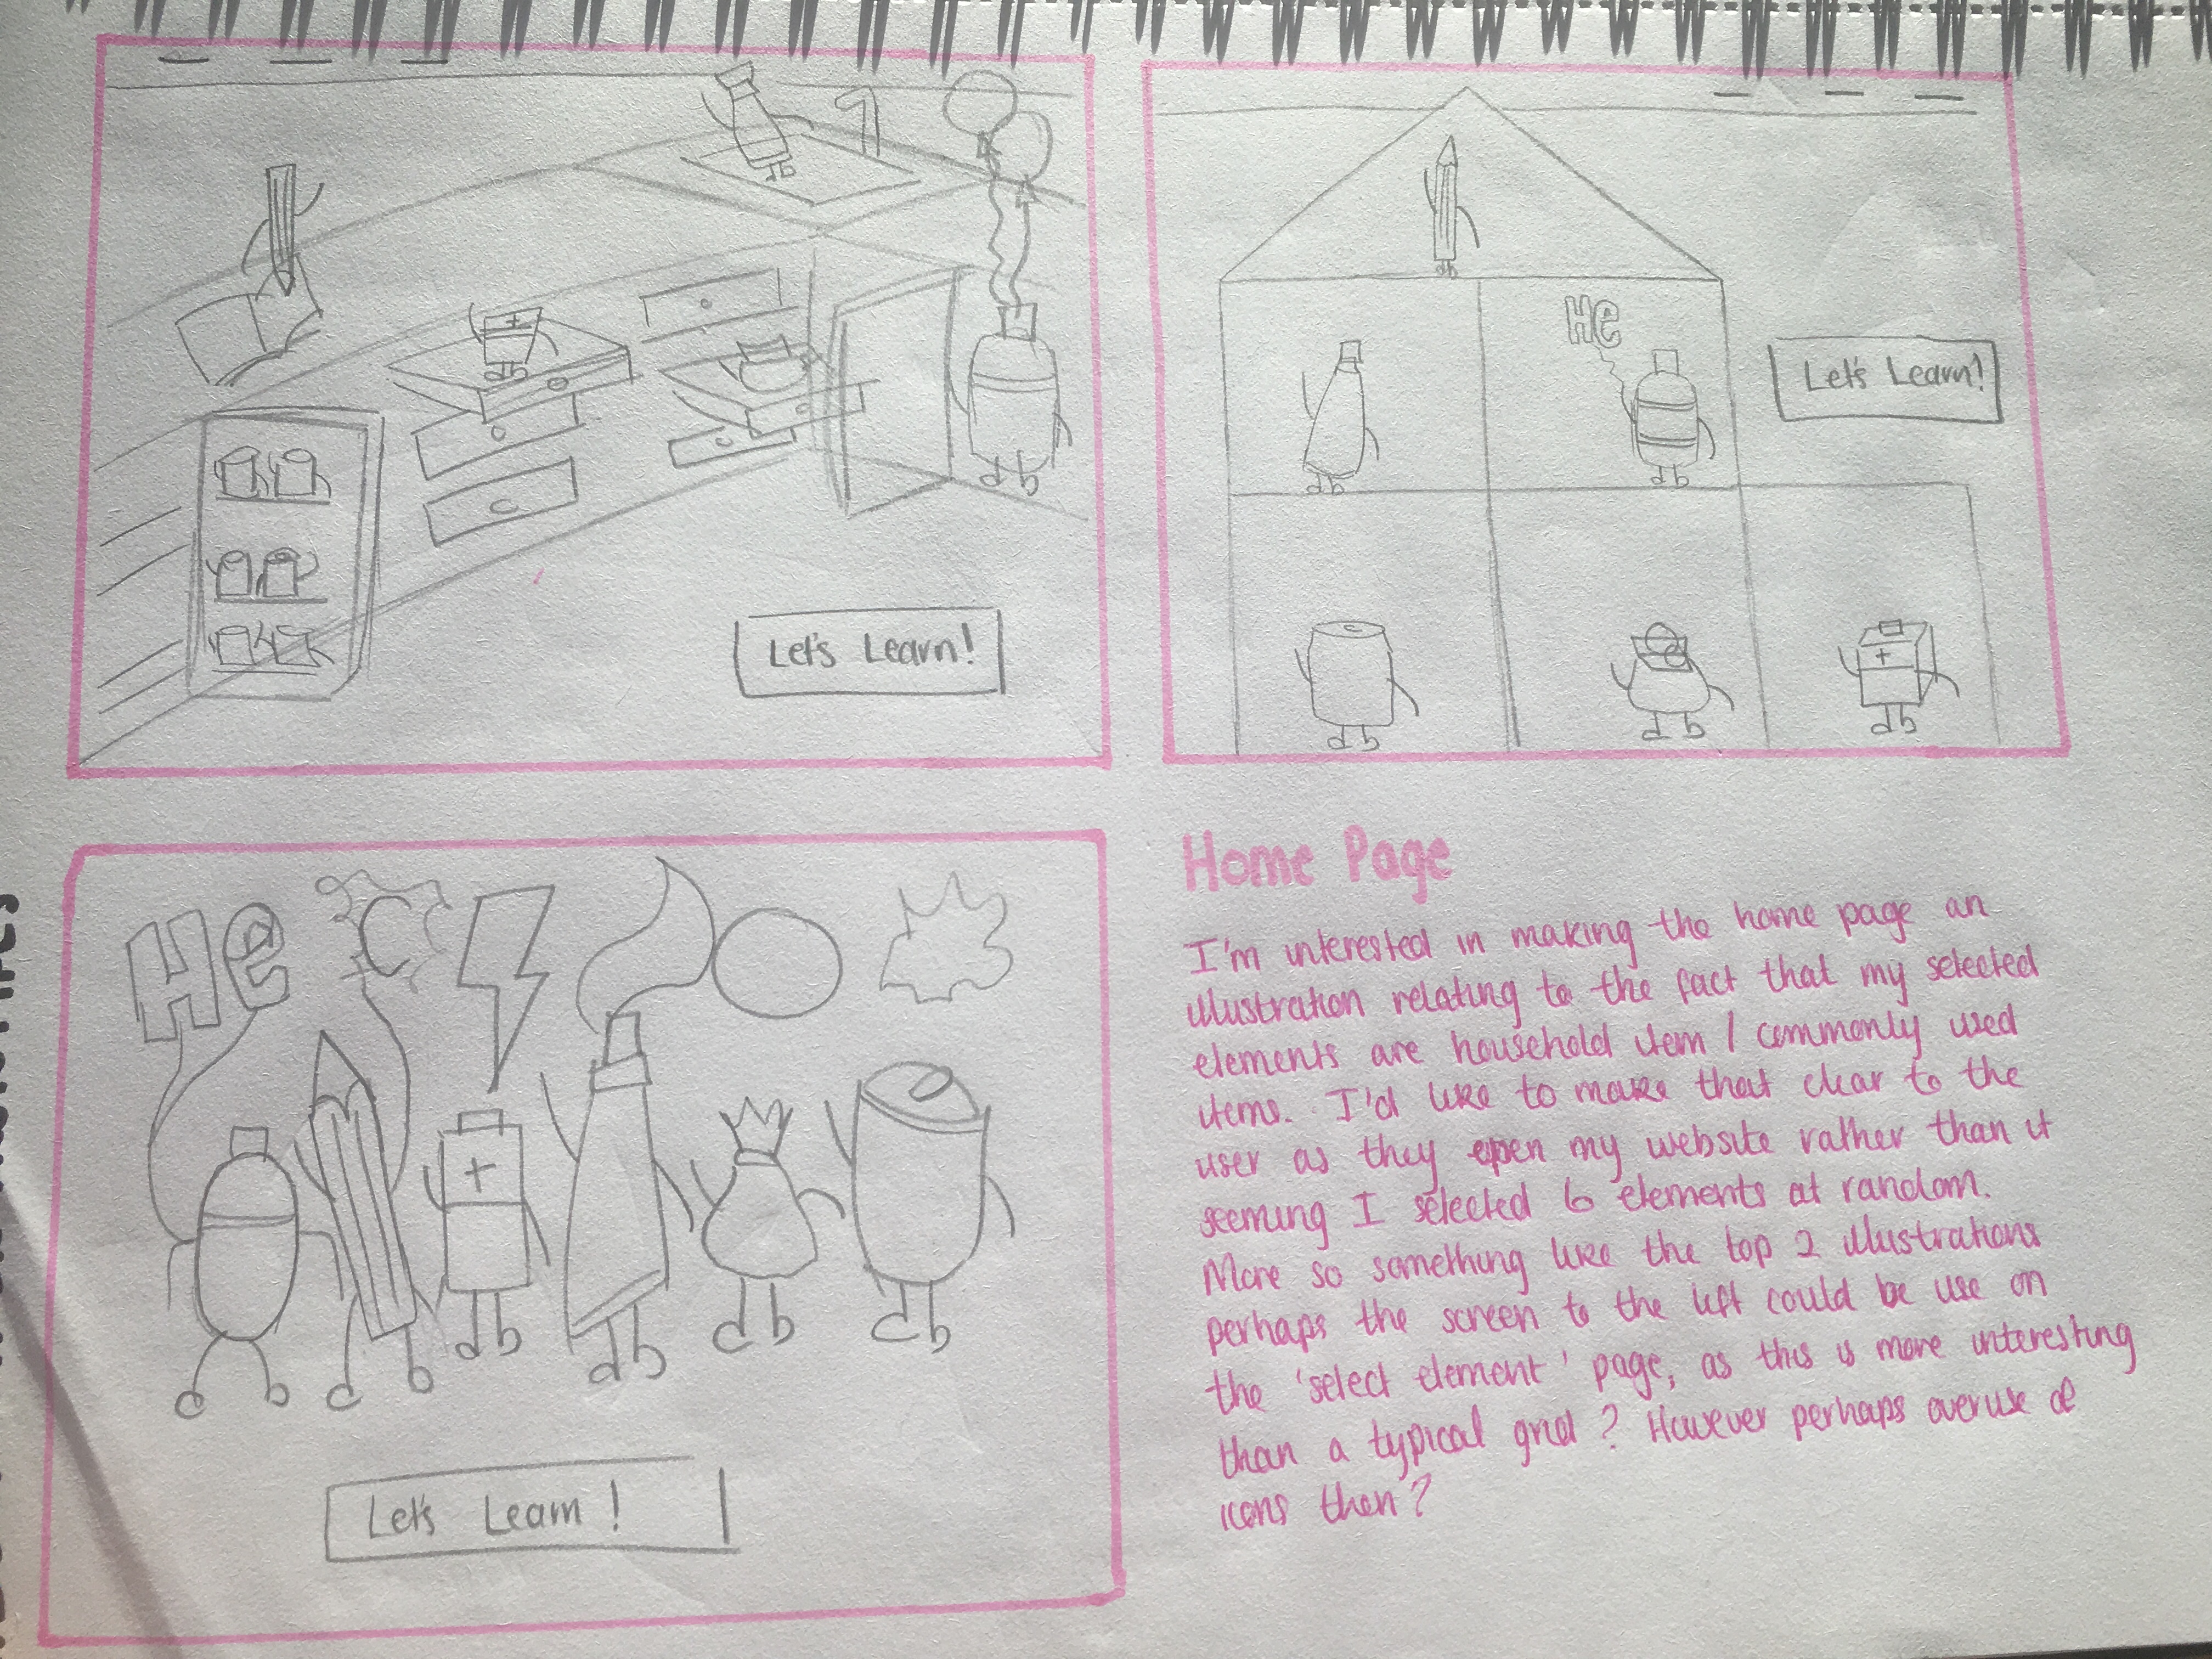 Let's Learn!
He
Let's Learn!
He C
Let's Learn!
Home Page
I'm interested in making the home page an
illustration relating to the fact that my selected
elements are household item / commonly used
items. I'd like to make that clear to the
user as they open my website rather than it
seeming I selected 6 elements at random.
More so something like the top 2 illustrations
perhaps the screen to the left could be use on
the 'select element' page, as this is more interesting
than a typical grid? However perhaps overuse of
icons then?